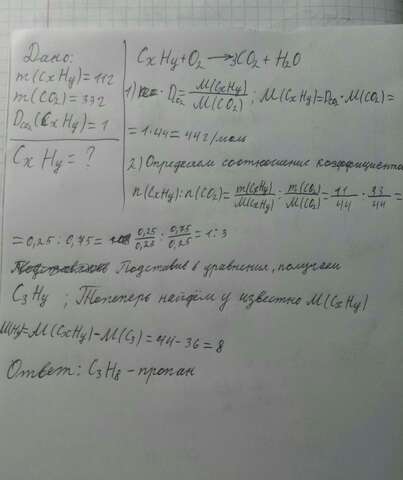 Дано:
m(CxHy)=112
m(CO2)=332
DCO2(CxHy)=1
CxHy=?
CxHy+O2→3CO2+H2O
1) DCO2=M(CxHy)/M(CO2); M(CxHy)=DCO2·M(CO2)=
=1·44=44г/моль
2) Определим соотношение коэффициентов
n(CxHy):n(CO2)=m(CxHy)/M(CxHy):m(CO2)/M(CO2)=11/44:33/44=
=0,25:0,75=0,25/0,25:0,75/0,25=1:3
Подставив в уравнения, получаем
C3Hy; Тепеперь найдём y известно M(CxHy)
M(Hy)=M(CxHy)-M(C3)=44-36=8
Ответ: C3H8-пропан